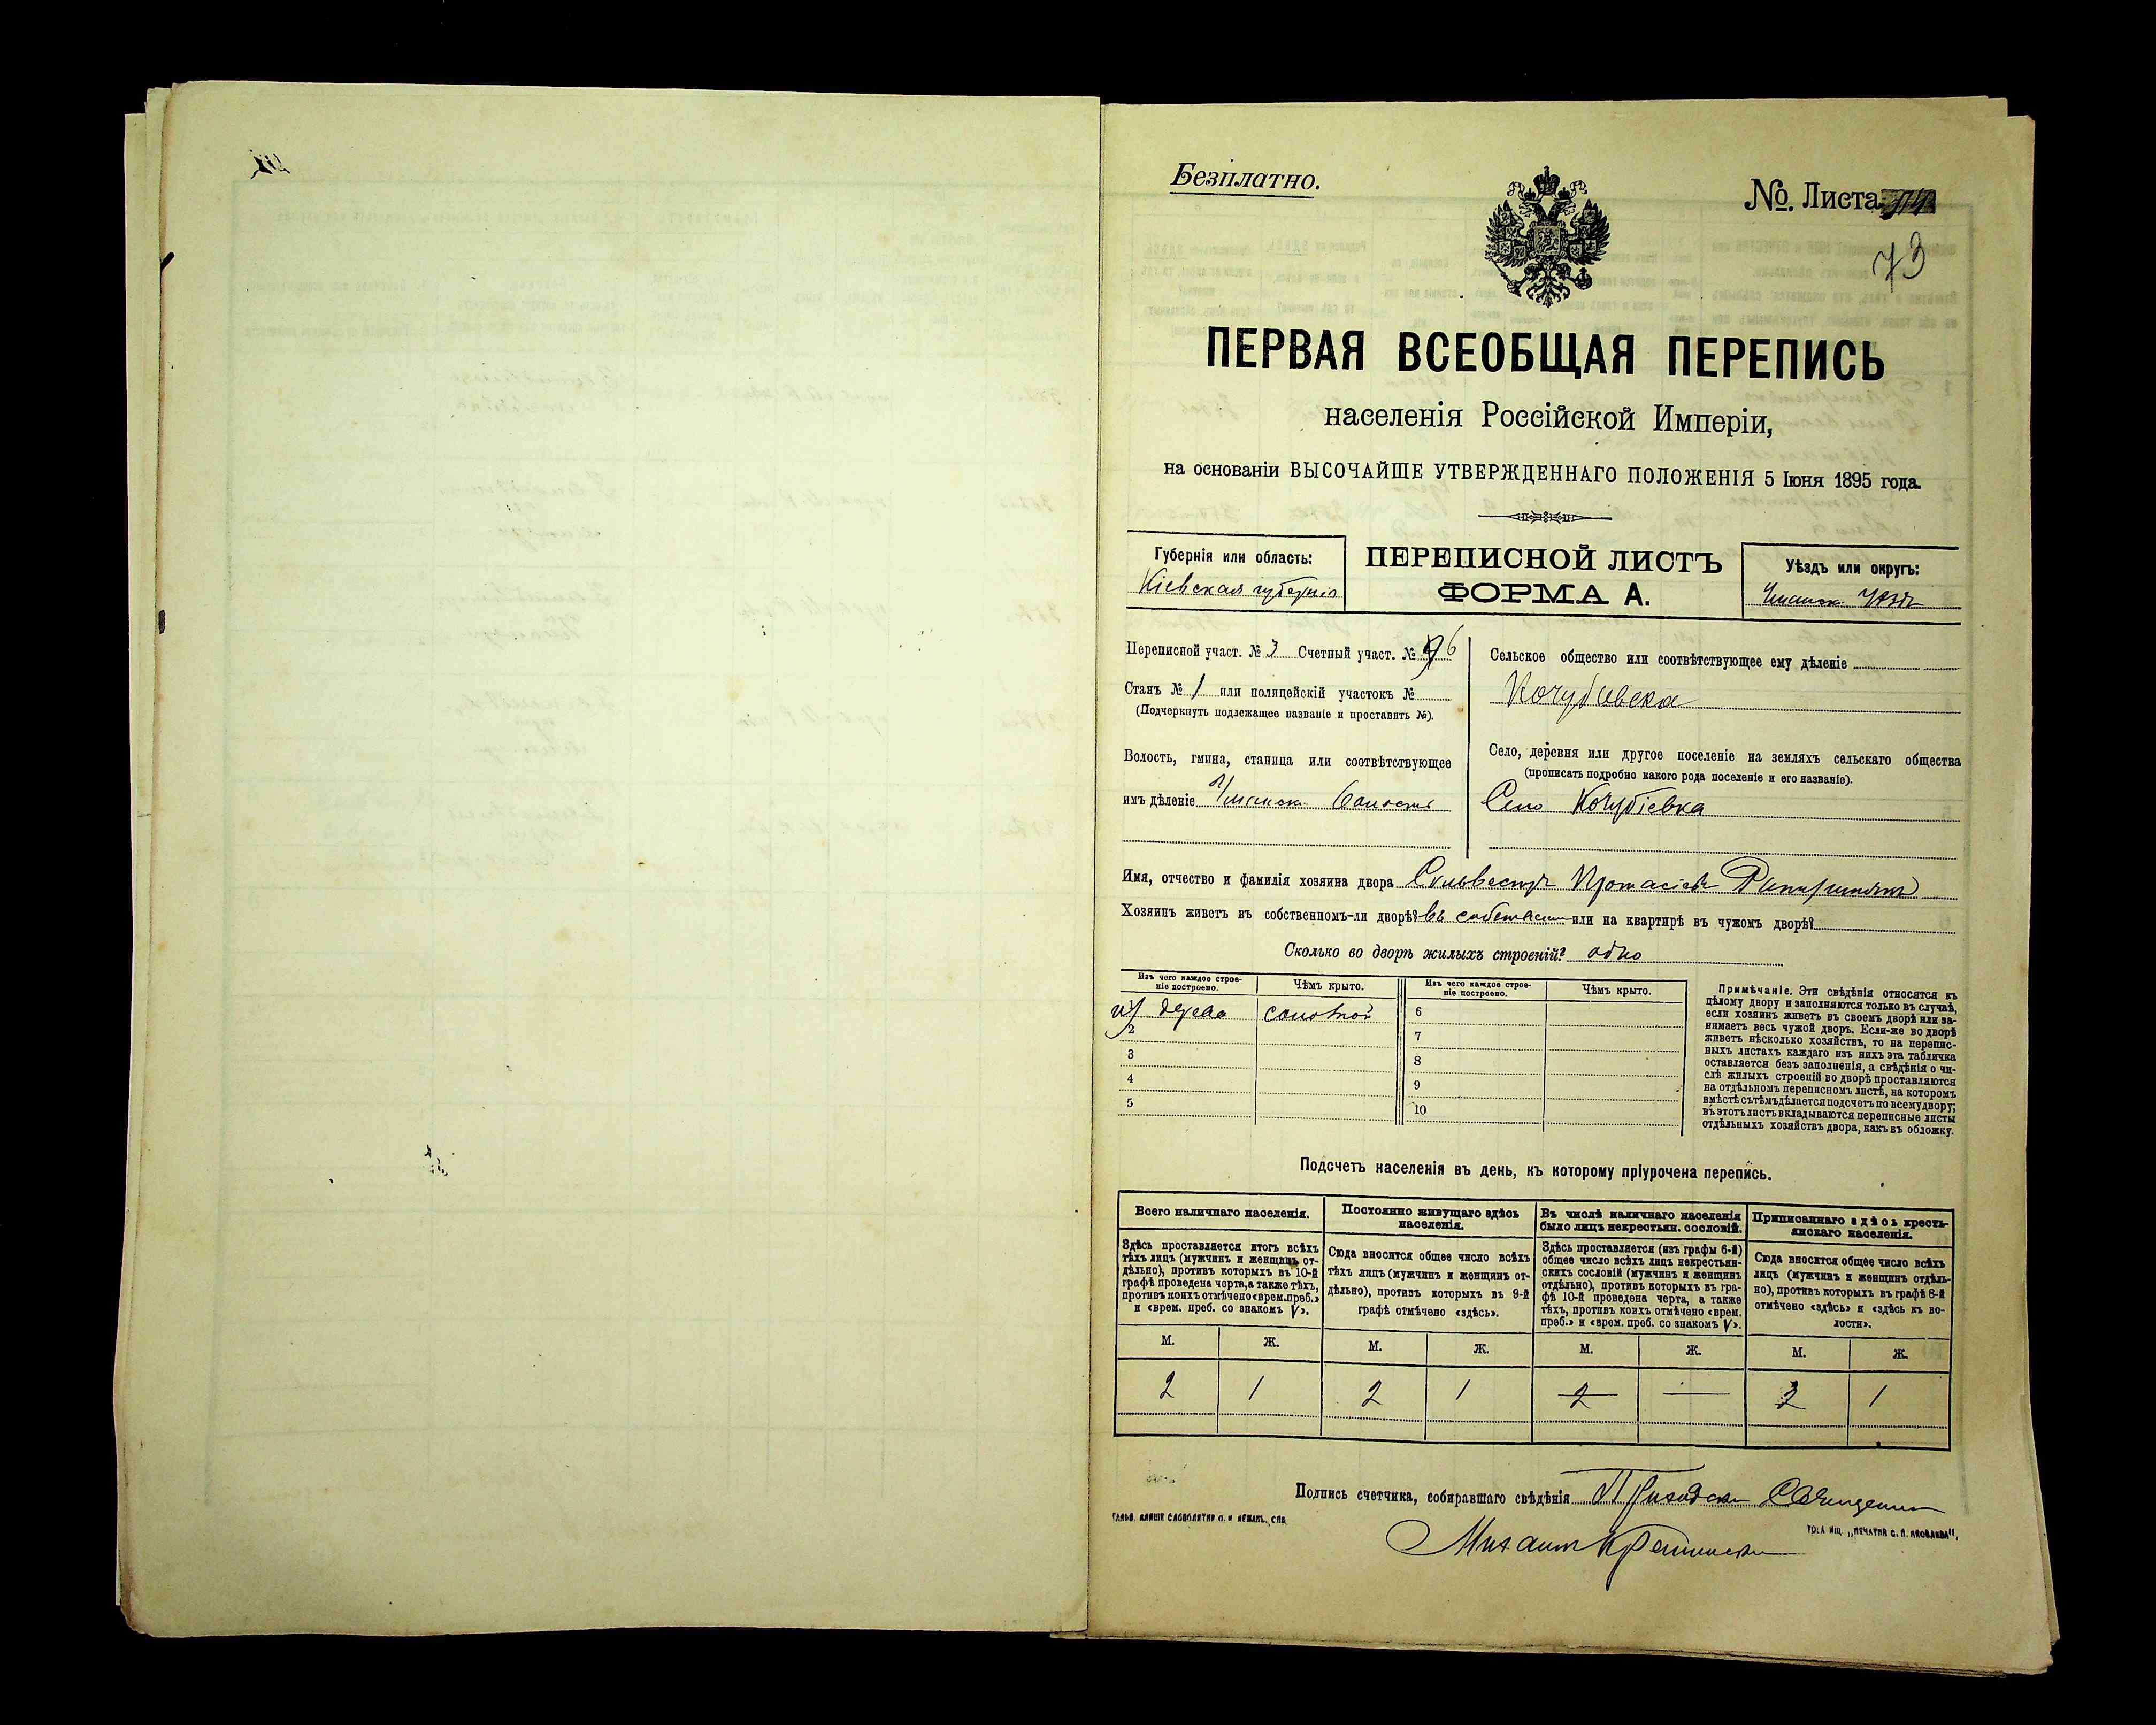 Безплатно.
№. Листа
73
ПЕРВАЯ ВСЕОБЩАЯ ПЕРЕПИСЬ
населенія Россійской Имперіи,
на основаніи ВЫСОЧАЙШЕ УТВЕРЖДЕННАГО ПОЛОЖЕНІЯ 5 Іюня 1895 года.
Губернія или область:
Кіевская губернія
ПЕРЕПИСНОЙ ЛИСТЪ
ФОРМА А.
Уѣздъ или округъ:
Уманск. Уѣздъ
Переписной участ. № 3 Счетный участ. № 6
Станъ № 1 или полицейскій участокъ №
(Подчеркнуть подлежащее названіе и проставить №).
Волость, гмина, станица или соотвѣтствующее
имъ дѣленіе Уманск. волость
Сельское общество или соотвѣтствующее ему дѣленіе
Кочубіевска
Село, деревня или другое поселеніе на земляхъ сельскаго общества
(прописать подробно какого рода поселеніе и его названіе).
Село Кочубіевка
Имя, отчество и фамилія хозяина двора Сильвестръ Протасіевъ
Хозяинъ живетъ въ собственномъ-ли дворѣ? въ собственом или на квартирѣ въ чужомъ дворѣ?
Сколько во дворѣ жилыхъ строеній? одно
Изъ чего каждое строе-
ніе построено.
Чѣмъ крыто.
Изъ чего каждое строе-
ніе построено.
Чѣмъ крыто.
изъ дерева соломой
2
3
4
5
6
7
8
9
10
Примѣчаніе. Эти свѣдѣнія относятся къ
цѣлому двору и заполняются только въ случаѣ,
если хозяинъ живетъ въ своемъ дворѣ или за-
нимаетъ весь чужой дворъ. Если-же во дворѣ
живетъ нѣсколько хозяйствъ, то на перепис-
ныхъ листахъ каждаго изъ нихъ эта табличка
оставляется безъ заполненія, а свѣдѣнія о чи-
слѣ жилыхъ строеній во дворѣ проставляются
на отдѣльномъ переписномъ листѣ, на которомъ
вмѣстѣ съ тѣмъ дѣлается подсчетъ по всему двору;
въ этотъ листъ вкладываются переписные листы
отдѣльныхъ хозяйствъ двора, какъ въ обложку.
Подсчетъ населенія въ день, къ которому пріурочена перепись.
Всего наличнаго населенія.
Здѣсь проставляется итогъ всѣхъ
тѣхъ лицъ (мужчинъ и женщинъ от-
дѣльно), противъ которыхъ въ 10-й
графѣ проведена черта, а также тѣхъ,
противъ коихъ отмѣчено «врем. преб.»
и «врем. преб. со знакомъ V».
Постоянно живущаго здѣсь
населенія.
Сюда вносится общее число всѣхъ
тѣхъ лицъ (мужчинъ и женщинъ от-
дѣльно), противъ которыхъ въ 9-й
графѣ отмѣчено «здѣсь».
Въ числѣ наличнаго населенія
было лицъ некрестьян. сословій.
Здѣсь проставляется (изъ графы 6-й)
общее число всѣхъ лицъ некрестьян-
скихъ сословій (мужчинъ и женщинъ
отдѣльно), противъ которыхъ въ гра-
фѣ 10-й проведена черта, а также
тѣхъ, противъ коихъ отмѣчено «врем.
преб.» и «врем. преб. со знакомъ V».
Приписаннаго здѣсь кресть-
янскаго населенія.
Сюда вносится общее число всѣхъ
лицъ (мужчинъ и женщинъ отдѣль-
но), противъ которыхъ въ графѣ 8-й
отмѣчено «здѣсь» и «здѣсь къ во-
лости».
М. Ж. М. Ж. М. Ж. М. Ж.
2 1 2 1 2 — 2 1
Подпись счетчика, собиравшаго свѣдѣнія
Михаилъ